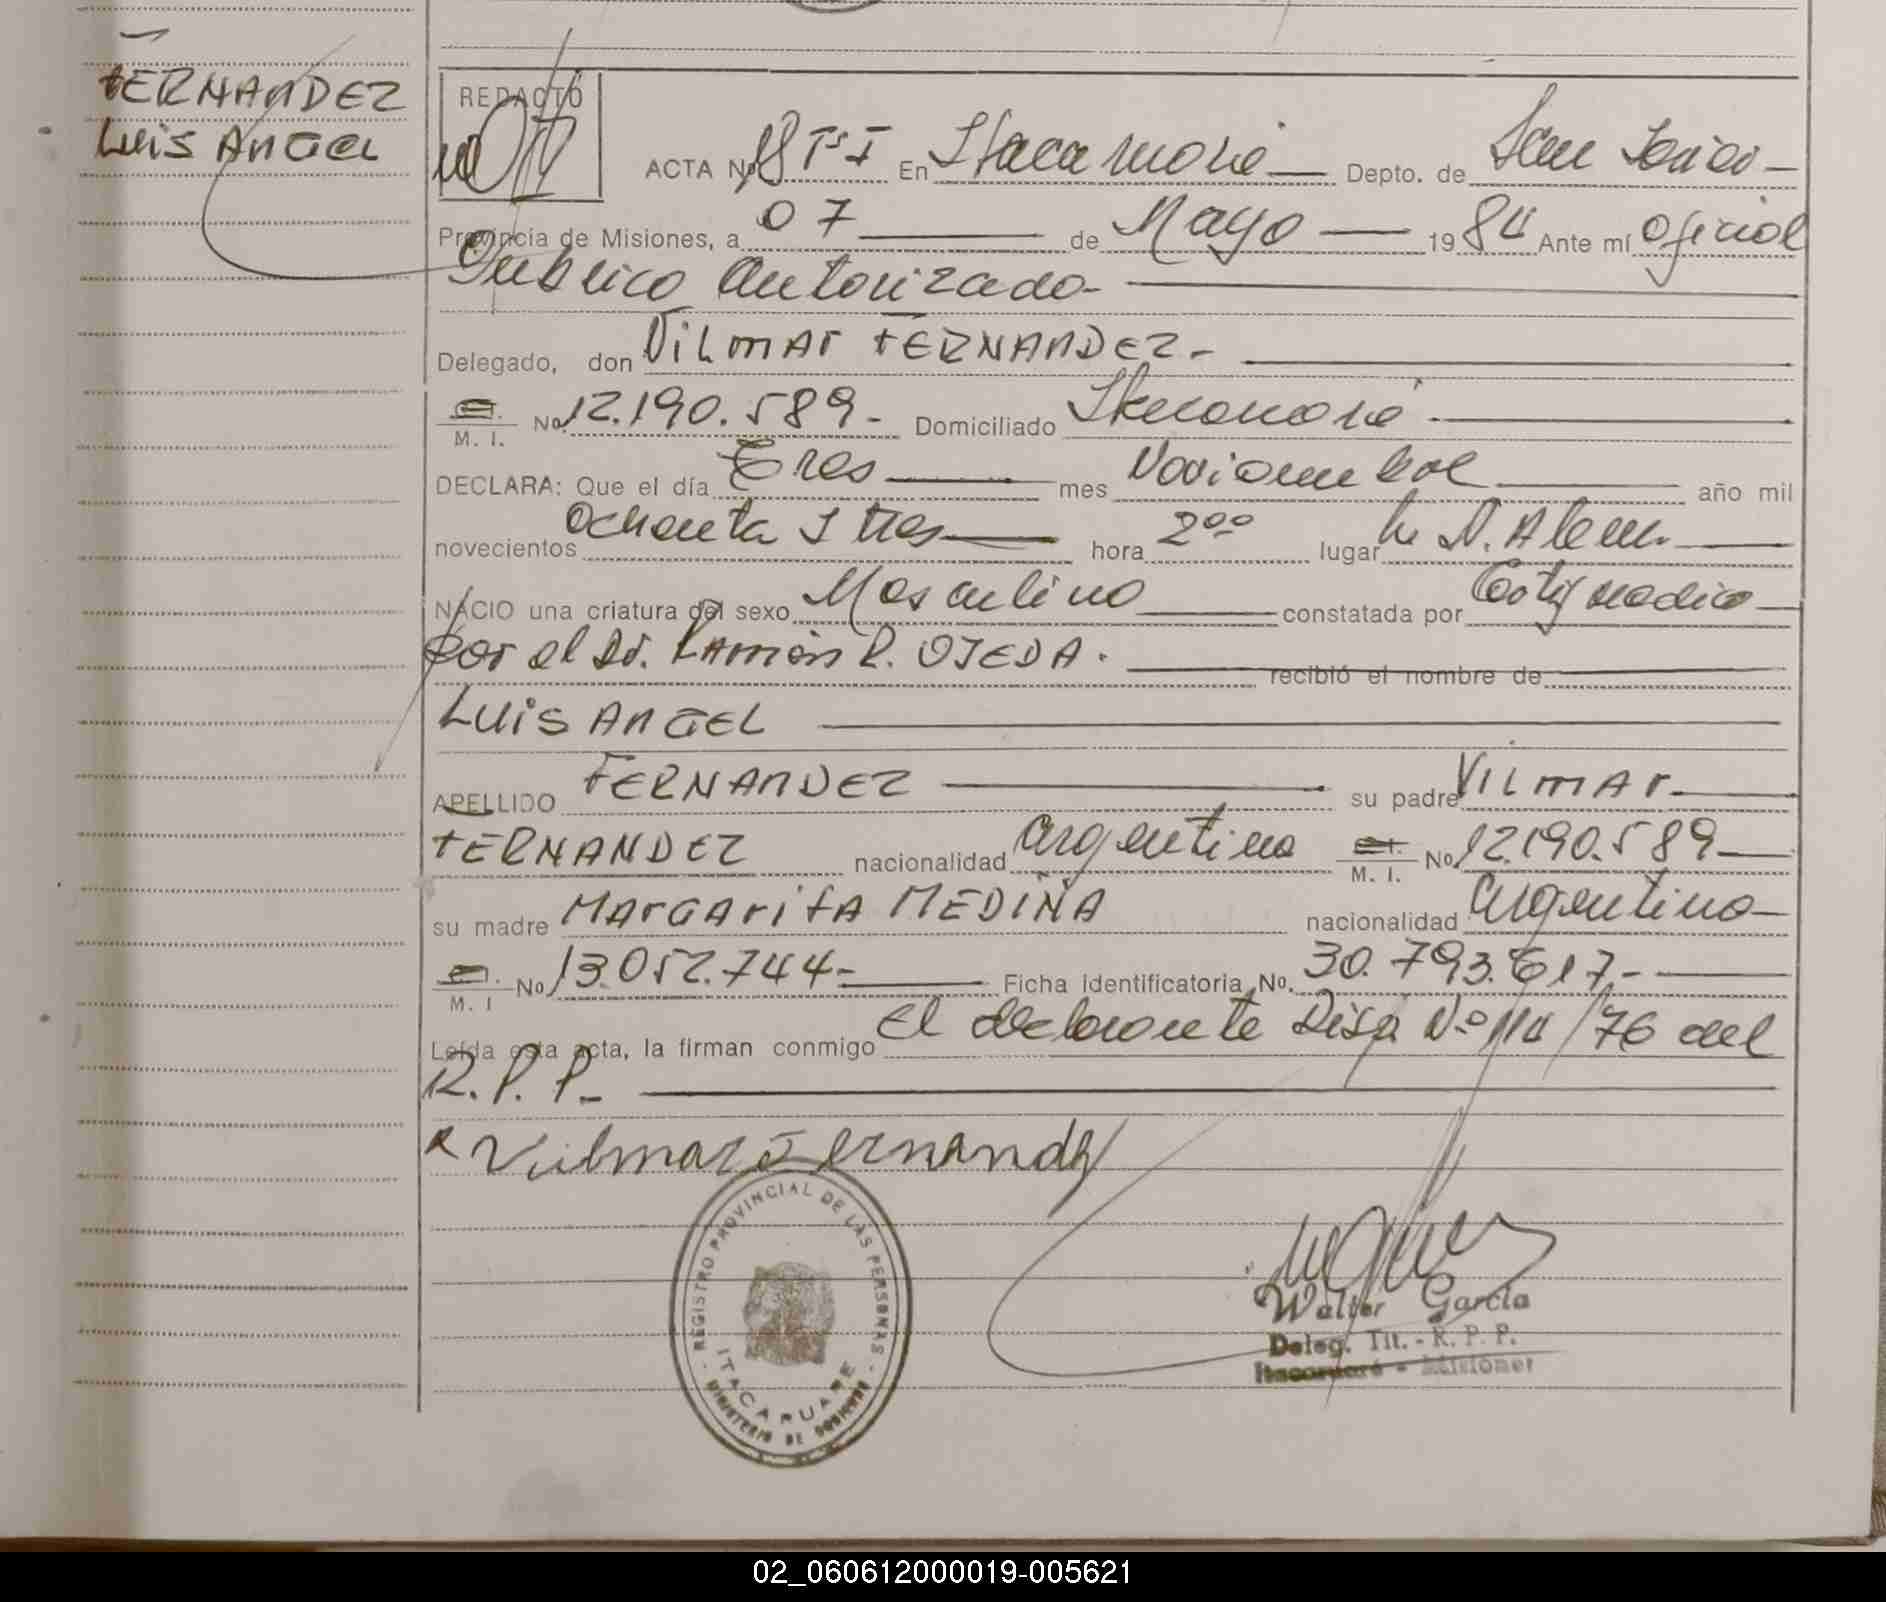 FERNANDEZ
Luis AnGEL
REDACTO
ACTA No 18 Ts I En Itacaruaré Depto. de San Javier
Provincia de Misiones, a 07 de Mayo 1984 Ante mí Oficial
Publico Autorizado
Delegado, don Vilmar FERNANDEZ
M. I. No 12.190.589 Domiciliado Itacaruaré
DECLARA: Que el día Tres mes Noviembre año mil
novecientos Ochenta y tres hora 2oo lugar L. N. Alem
NACIO una criatura del sexo Masculino constatada por Cert. medico
por el Dr. Ramón R. OJEDA. recibió el nombre de
Luis AnGEL
APELLIDO FERNANDEZ su padre Vilmar
FERNANDEZ nacionalidad argentina M. I. No 12.190.589
su madre MArGAritA MEDIÑA nacionalidad argentina
M. I No 13.052.744 Ficha identificatoria No. 30.793.617
Leída esta acta, la firman conmigo El declarante Disp Nº 114/76 del
R.P.P.
Vilmar Fernandez
REGISTRO PROVINCIAL DE LAS PERSONAS
ITACARUARE
MINISTERIO DE GOBIERNO
Walter García
Deleg. Tit. - R. P. P.
Itacaruaré - Misiones
02_060612000019-005621